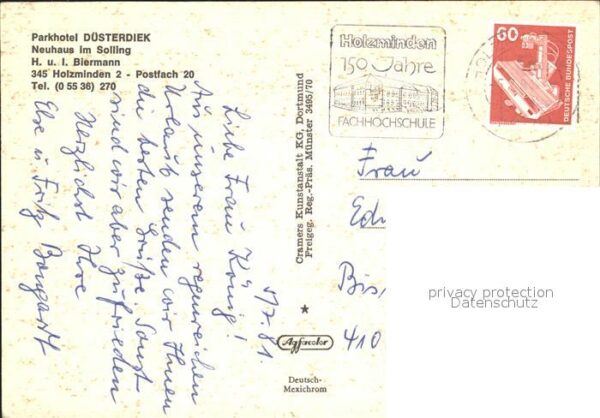 Parkhotel DÜSTERDIEK
Neuhaus im Solling
H. u. I. Biermann
345 Holzminden 2 - Postfach 20
Tel. (0 55 36) 270
5/7. 81.
Liebe Frau König!
Aus unserem regenreichen
Urlaub senden wir Ihnen
die besten Grüße. Sonst
sind wir aber zufrieden
Herzlichst Ihre
Else u. Fritz Bongartz
Cramers Kunstanstalt KG, Dortmund
Freigeg. Reg.-Präs. Münster 3495/70
Agfacolor
Deutsch-
Mexichrom
Holzminden
150 Jahre
FACHHOCHSCHULE
60
DEUTSCHE BUNDESPOST
Frau
Bis
410
privacy protection
Datenschutz